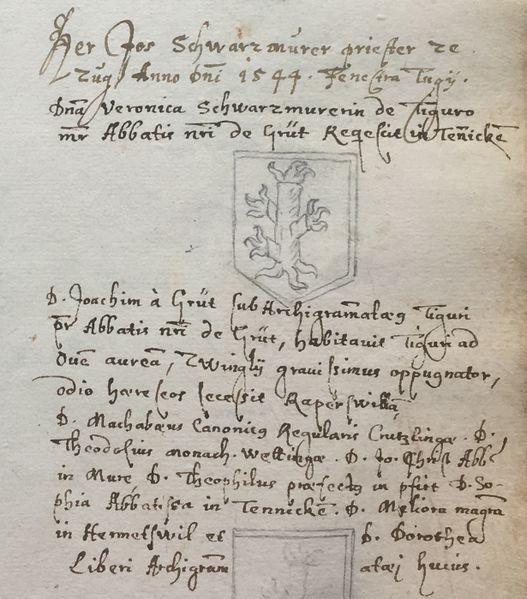 Her Jos Schwarzmurer priester ze
Zug Anno Dni 1544. Fenestra Tugij.
Dna Veronica Schwarzmurerin de Tiguro
mr Abbatis nri de Grüt Reqescit in Tennickē
D. Joachim à Grüt sub Archigramataeg Tiguri
pr Abbatis nri de Grüt, habitavit Tiguri ad
Ovē aureā, Zwinglij gravissimus oppugnator,
odio haereseos secessit Raperswillā
D. Machabaeus Canonicg Regularis Crutzlingae. D.
Theodosius monach. Wettingae. D. Jo: Christ Abb
in Mure D. Theophilus praefectg in pfirt D. So-
phia Abbatissa in Tennickē. D. Meliora magra
in Hermetswil et D. Dorothea
Liberi Archigram ataej huius.